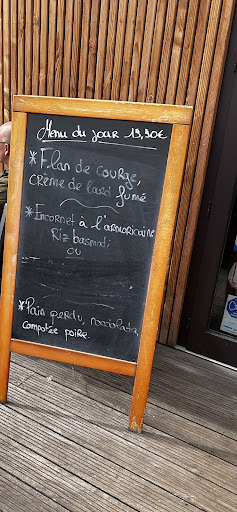 Menu du jour 19,90€
* Flan de courge,
crème de lard fumé
* Encornet à l'armoricaine
Riz basmati
ou
* Pain perdu, nocciolata,
compotée poire.